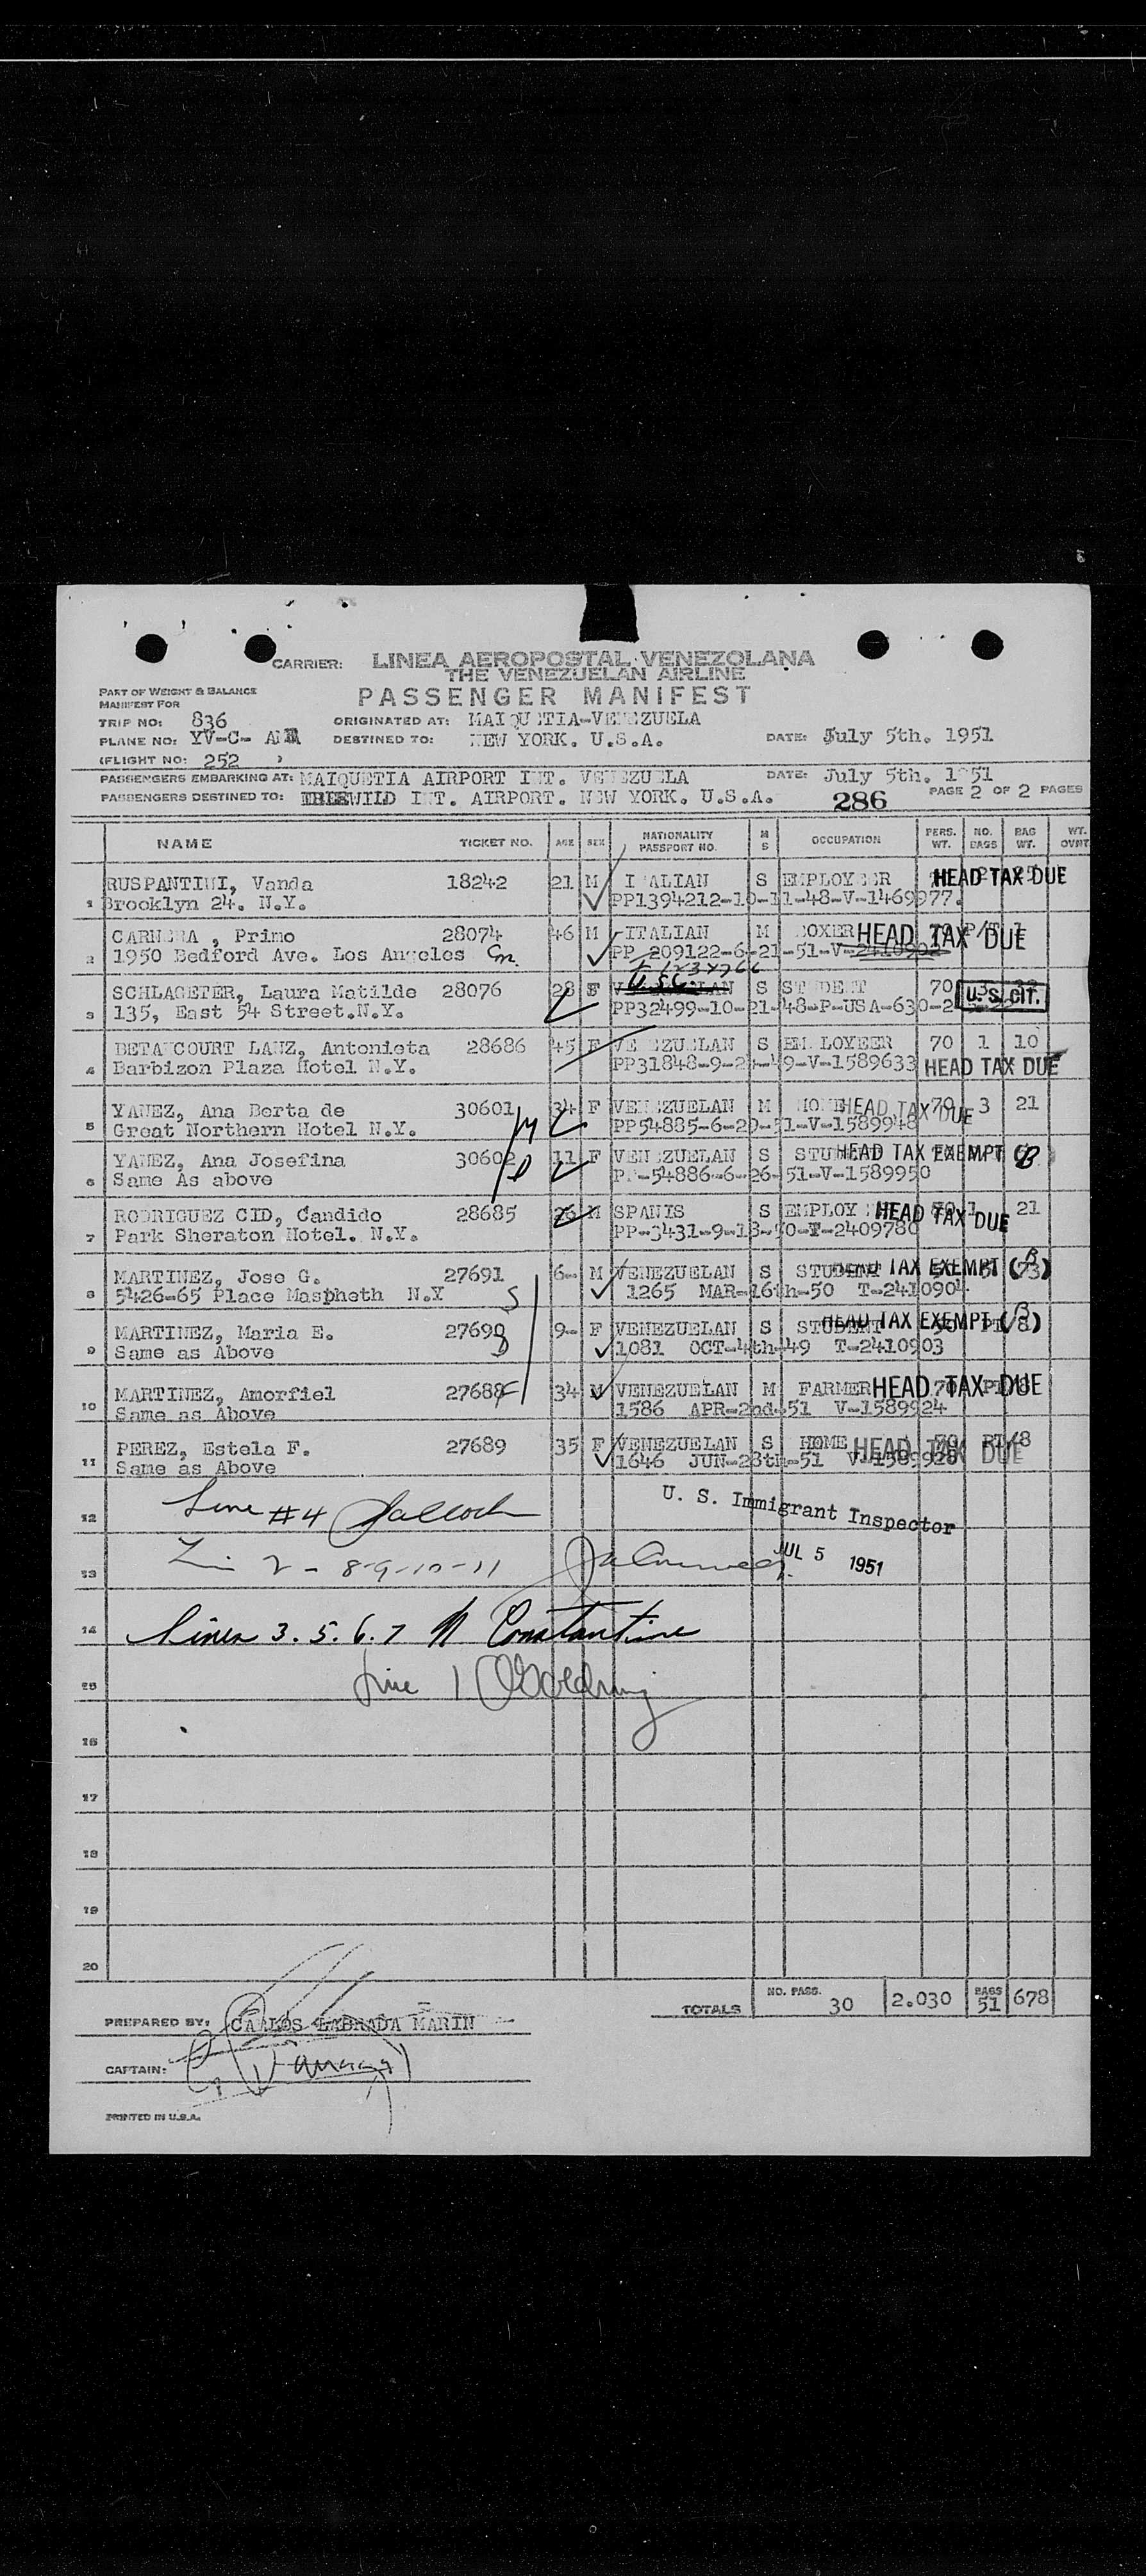 CARRIER: LINEA AEROPOSTAL VENEZOLANA
THE VENEZUELAN AIRLINE
PASSENGER MANIFEST
PART OF WEIGHT & BALANCE
MANIFEST FOR
TRIP NO: 836 ORIGINATED AT: MAIQUETIA-VENEZUELA
PLANE NO: YV-C- DESTINED TO: NEW YORK. U.S.A. DATE: July 5th. 1951
(FLIGHT NO: 252 )
PASSENGERS EMBARKING AT: MAIQUETIA AIRPORT INT. VENEZUELA DATE: July 5th. 1951
PASSENGERS DESTINED TO: IDLEWILD INT. AIRPORT. NEW YORK. U.S.A. 286 PAGE 2 OF 2 PAGES
NAME TICKET NO. AGE SEX NATIONALITY PASSPORT NO. M S OCCUPATION PERS. WT. NO. BAGS BAG WT. WT. OVNT.
RUSPANTINI, Vanda 18242 21 M ITALIAN S EMPLOYEER HEAD TAX DUE
1 Brooklyn 24. N.Y. PP1394212-10-11-48-V-1469977.
CARNERA , Primo 28074 46 M ITALIAN M BOXER HEAD TAX DUE
2 1950 Bedford Ave. Los Angeles PP 209122-6-21-51-V-2410902
U.S.C.
SCHLAGETER, Laura Matilde 28076 28 F VENEZUELAN S STUDENT 70 3 U.S. cit.
3 135, East 54 Street.N.Y. PP32499-10-21-48-P-USA-630-2
BETANCOURT LANZ, Antonieta 28686 45 F VENEZUELAN S EMPLOYEER 70 1 10
4 Barbizon Plaza Hotel N.Y. PP31848-9-24-49-V-1589633 HEAD TAX DUE
YANEZ, Ana Berta de 30601 34 F VENEZUELAN M HOME HEAD TAX DUE 70 3 21
5 Great Northern Hotel N.Y. PP54885-6-29-51-V-1589948
YANEZ, Ana Josefina 30602 11 F VENEZUELAN S STUDENT HEAD TAX EXEMPT
6 Same As above PP-54886-6-26-51-V-1589950
RODRIGUEZ CID, Candido 28685 26 M SPANIS S EMPLOY HEAD TAX DUE 1 21
7 Park Sheraton Hotel. N.Y. PP-3431-9-18-50-T-2409780
MARTINEZ, Jose G. 27691 6- M VENEZUELAN S STUDENT HEAD TAX EXEMPT (B)
8 5426-65 Place Maspheth N.Y 1265 MAR-16th-50 T-2410904
MARTINEZ, Maria E. 27690 9- F VENEZUELAN S STUDENT HEAD TAX EXEMPT (B)
9 Same as Above 1081 OCT-4th-49 T-2410903
MARTINEZ, Amorfiel 27688 34 M VENEZUELAN M FARMER HEAD TAX DUE 70
10 Same as Above 1586 APR-2nd-51 V-1589924
PEREZ, Estela F. 27689 35 F VENEZUELAN S HOME HEAD TAX DUE 70 PT/8
11 Same as Above 1646 JUN-28th-51 V-1589928
12 Line #4 U. S. Immigrant Inspector
13 2 - 8-9-10-11 JUL 5 1951
14 Lines 3. 5. 6. 7 Constantine
15 Line 1
16
17
18
19
20
TOTALS NO. PASS. 30 2.030 BAGS 51 678
PREPARED BY: CARLOS LABRADA MARIN
CAPTAIN:
PRINTED IN U.S.A.